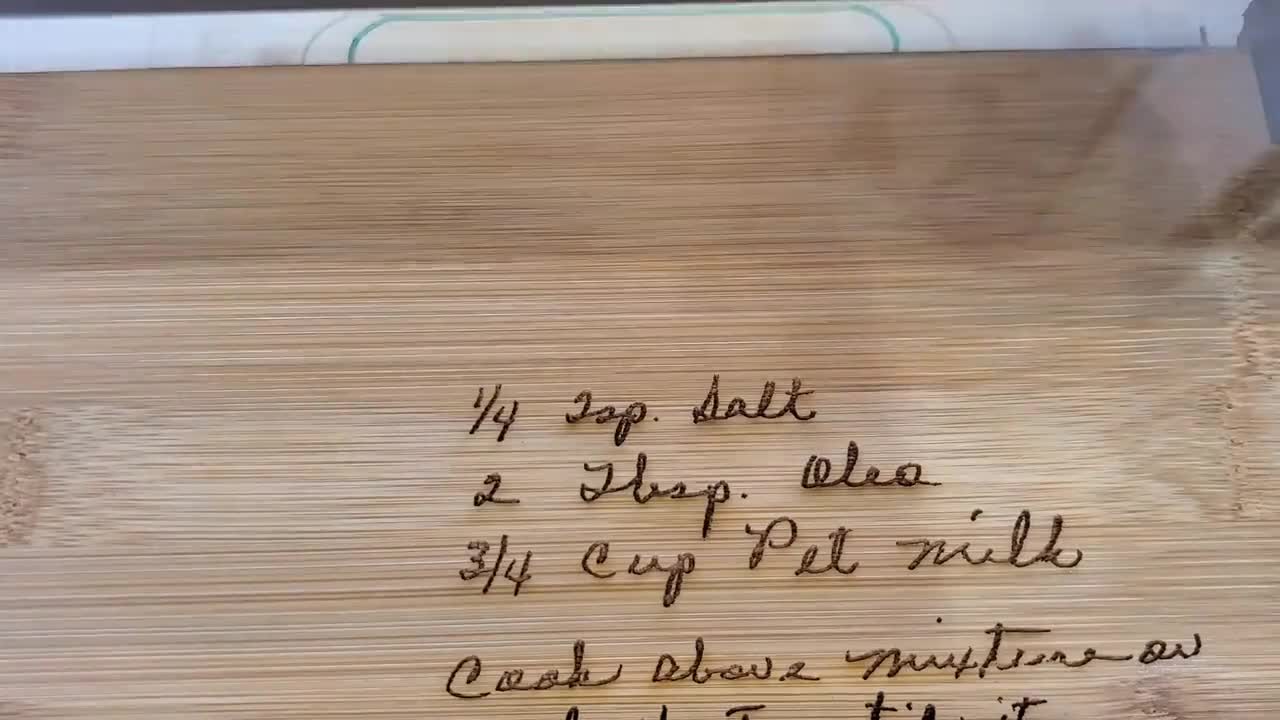 1/4 Tsp. Salt
2 Tbsp. Oleo
3/4 Cup Pet milk
Cook above mixture on
til it